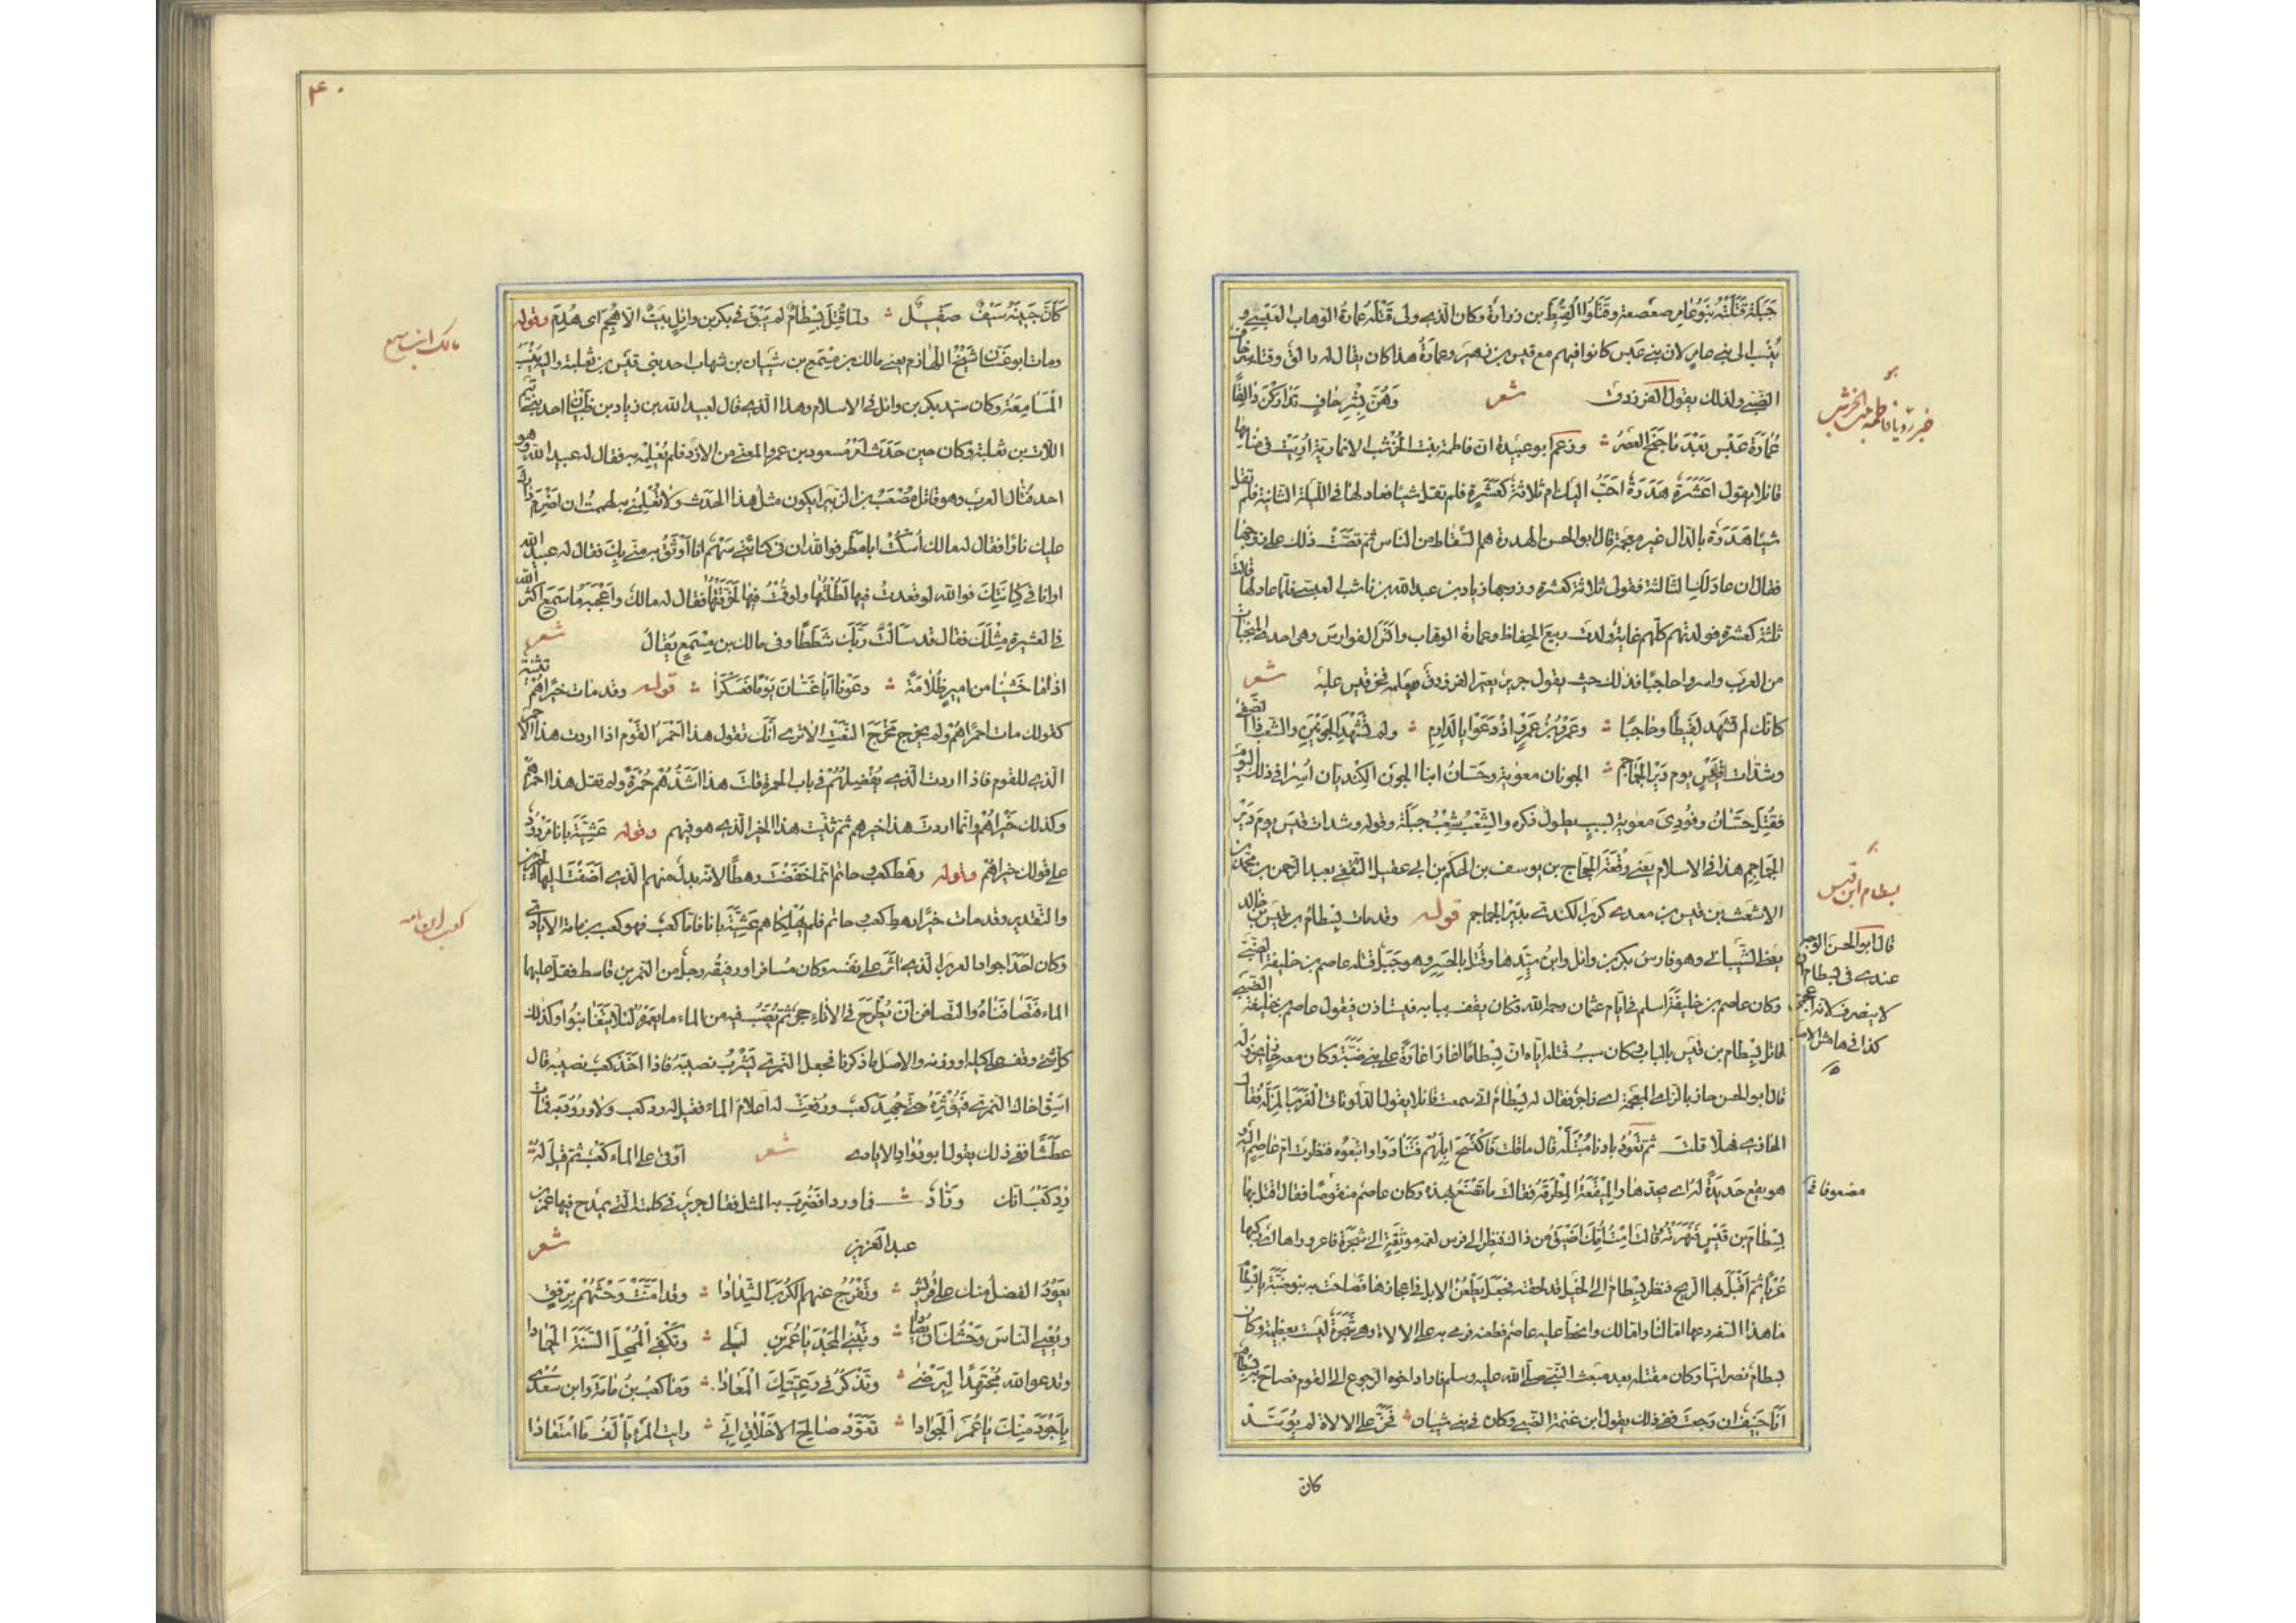 جَبَلَة قَتَلَتْهُ بَنُو عَامِر بن صعصعة وقَتَلُوا لَقِيطَ بن زرارة وكان الذي ولى قَتْلَهُ عمارة الوهاب العَبْسِي و
يُنْسَب الى بني عامر لان بني عبس كانوا فيهم مع قيس بن زهير وعمارة هذا كان يقال له دالق وقتله شِرْحاف
الضبي ولذلك يقول الفرزدق شعر وهُنَّ بِشِرْحافٍ تَدَارَكْنَ دَالِقًا
عُمَارَةَ عَبْسٍ بَعْدَ مَا جَنَحَ العَصْرُ وزعم ابو عبيدة ان فاطمة بنت الخُرْشُب الانمارية أُرِيَتْ في منامها
قائلا يقول اعَشَرَة هُدَرَة احَبُّ اليك ام ثلاثة كعَشَرة فلم تقل شيئا فعاد لها في الليلة الثانية فلم تقل
شيئا هُدَرَة بالدال غير معجمة قال ابو الحسن الهدرة هم السُّقاط من الناس ثم قَصَّتْ ذلك على زوجها
فقال ان عاد لكِ الثالثة فقولي ثلاثة كعشرة وزوجها زياد بن عبد الله بن ناشب العبسي فلما عاد لها قالت
ثلاثة كعشرة فولدتهم كلهم غاية ولدت ربيع الحِفاظ وعمارة الوهاب وانس الفوارس وهي احدى المنجبات
من العرب واسروا حاجبا فذلك حيث يقول جرير يعير الفرزدق ويعلمه فخر قيس عليه شعر
كانك لم تشهد لقيطًا وحاجبًا وعَمْرَو بنَ عَمْرٍو اذْ دَعَوْا يالَدارِمِ ولم تَشْهَدِ الجَوْنَيْنِ والشِّعْبَ ذا الصَّفَا
وشَدَّاتِ قَيْسٍ يوم دَيْرِ الجَمَاجِمِ الجونان معوية وحسان ابنا الجون الكِنْديان أُسِرا في ذلك اليوم
فقُتِلَ حَسَّانُ وفُودِيَ معوية لسببٍ يطول ذكره والشِّعْبُ شِعْبُ جَبَلَة وقوله وشدات قيس يوم دَيْر
الجماجم هذا في الاسلام يعني وَقْعَة الحجاج بن يوسف بن الحكم بن ابي عقيل الثقفي بعبد الرحمن بن محمد بن
الاشعث بن قيس بن معدي كرب الكندي بدير الجماجم قوله وقد مات بسطام بن قيس بن خالد
يعني الشيباني وهو فارس بكر بن وائل وابن سيدها وقُتل بالحَسَن وهو جَبَل قتله عاصم بن خليفة الضبي
وكان عاصم بن خليفة اسلم في ايام عثمان رحمه الله وكان يقف ببابه فيستاذن فيقول عاصم بن خليفة الضبي
قاتل بسطام بن قيس بالباب وكان سببُ قتله اياه ان بِسْطامًا اغار اغارةً على بني ضَبَّة وكان معه حازٍ يحزو له
قال ابو الحسن حاز بالزاي المعجمة اي زاجر فقال له بِسْطام اني سمعت قائلا يقول الدلو تاتي الغَرَبَ المَزِلَّهْ فقال
الحازي فهلا قلت ثم تَعُودُ بادنا مُبْتَلَّهْ قال ما قلت فاكْتَسَحَ ابِلَهُمْ فتنادوا واتبعوه فنظرت ام عاصم اليه
هو يقع حديدة له اي يحدها والمِيقَعَةُ المِطْرَقَة فقالت ما تَصْنَعُ بهذه وكان عاصم منقوصًا فقال اقتل بها
بسطام بن قيس فَنَهَرَتْهُ وقالت اسْتُ أُمِّكَ اضيق من ذاك فنظر الى فرس لعمه موثقة الى شجرة فاعرورَاها اي ركبها
عُرْيًا ثم اقبل بها كالريح فنظر بسطام الى الخيل قد لحقته فجعل يطعن الابل في اعجازها فصاحت به بنو ضبة يا بسطام
ما هذا السفه دعها اما لنا واما لك وانحط عليه عاصم فطعنه فرمى به على الالاءة وهي شجرة ليست بعظيمة وكان
بسطام نصرانيا وكان مقتله بعد مبعث النبي صلى الله عليه وسلم فاراد اخوه الرجوع الى القوم فصاح به بسطام
انا حنيف ان رجعت ففي ذلك يقول ابن عنمة الضبي وكان في بني شيبان فخَرَّ على الالاءة لم يُوَسَّدْ
كان
خبر رؤيا فاطمة بنت الخرشب
بسطام ابن قيس
قال ابو الحسن الوجه
عندي في بسطام ان
لا ينصرف لانه اعجمي
كذا في هامش الاصل
مضعوفا
٤٠
كَأَنَّ جَبِينَهُ سَيْفٌ صَقِيلُ ولما قُتِلَ بِسْطامٌ لم يَبْقَ في بكر بن وائل بيتٌ الا هُجِمَ اي هُدِمَ وقوله
ومات ابو غَسَّان شَيْخُ اللَّهازم يعني مالك بن مِسْمَع بن شيبان بن شهاب احد بني قيس بن ثعلبة واليه ينسب
المَسَامِعَة وكان سيد بكر بن وائل في الاسلام وهذا الذي قال لعبيد الله بن زياد بن ظَبْيان احد بني تيم
اللات بن ثعلبة وكان حين حَدَثَ امرُ مسعود بن عمرو المعني من الازد فلم يُعْلِمْه به فقال له عبيد الله وهو
احد فُتَّاك العرب وهو قاتل مُصْعَب بن الزبير ايكون مثل هذا الحدث ولا تُعْلِمُني به لهممتُ ان اضرم دارك
عليك نارًا فقال له مالك اسكت ابا مطر فوالله ان في كنانتي سَهْمٌ انا اوْثَقُ به مني بِكَ فقال له عبيد الله
اوانا في كِنانَتِكَ فوالله لو قعدتُ فيها لَطُلْتُها ولو قُمْتُ فيها لَخَرَقْتُها فقال له مالك واعجبه ما سمع اكثر الله
في العشيرة مِثْلَكَ فقال قد سَأَلْتَ رَبَّكَ شَطَطًا وفي مالك بن مِسْمَعٍ يقال شعر
اذا ما خَشِينا من اميرٍ ظُلَامَةً دعَوْنا ابا غَسَّانَ يَوْمًا فعَسْكَرَا قوله وقد مات خيراهُم تثنية
كقولك مات احْمَراهُم ولم يخرج مَخْرَجَ النعت الا ترى أنك تقول هذا احْمَرُ القَوْم اذا اردت هذا الاحمر
الذي للقوم فاذا اردت الذي يُفَضِّلُهُم في باب الحمرة قلت هذا اشَدُّهُمْ حُمْرَةً ولم تقل هذا احمرهم
وكذلك خيراهُم وانما اردت هذا خيرهم ثم ثنيت هذا الخير الذي هو فيهم وقوله عشيَّةَ بانا مردود
على قولك خيراهُم وقوله رهط كعب وحاتم انما خفضت رهطًا لانه بدل من هم الذي اضفت اليها الخيرين
والتقدير وقد مات خيرا رهط كعب وحاتم فلم يُهْلِكاهم عشيَّةَ بانا فاما كعب فهو كعب بن مامة الايادي
وكان احد اجواد العرب الذي آثر على نفسه وكان مسافرا ورفيقُه رجلٌ من النمر بن قاسط فقل عليهما
الماء فتَصَافَنَاهُ والتصافن أنْ يُطْرَحَ في الاناء حجر ثم يُصَبُّ فيه من الماء ما يَغْمُرُه لئلا يتغابنوا وكذلك
كل شيء وقف على كيله او وزنه والاصل ما ذكرنا فجعل النمري يَشْرَبُ نصيبَهُ فاذا اخذ كعب نصيبه قال
اسْقِ اخاك النمري فيُؤْثِرُهُ حتى جُهِدَ كعب ورُفِعَتْ له أعلامُ الماء فقيل له رد كعب ولا ورود به فمات
عطشًا ففي ذلك يقول ابو دواد الايادي شعر أَوْفَى على الماء كَعْبٌ ثم قيل له
رِدْ كَعْبُ انك ورَّادٌ فما وردا فضُرِبَ به المثل فقال جرير في كلمته التي يمدح فيها عمر بن
عبد العزيز شعر
يَعُودُ الفضلُ منك على قُرَيْشٍ وتَفْرُجُ عنهمُ الكُرَبَ الشِّدَادَا وقد امَّنْتَ وَحْشَهُمْ بِرِفْقٍ
ويُعْيِي الناسَ وَحْشُكَ أن يُصادا وتَبْنِي المَجْدَ يا عُمَرَ بنَ لَيْلَى وتَكْفِي المُمْحِلَ السَّنَةَ الجَمَادا
وتدعو الله مُجْتَهِدًا ليَرْضَى وتَذْكُرُ في رَعِيَّتِكَ المَعَادَا وما كَعْبُ بنُ مَامَةَ وابن سُعْدَى
بأجْوَدَ مِنْكَ يا عُمَرَ الجَوَادَا تَعَوَّدْ صالِحَ الاخْلاقِ إنّي رايت المَرْءَ يأْلَفُ ما اسْتَعَادَا
مالك ابن مسمع
كعب ابن مامه